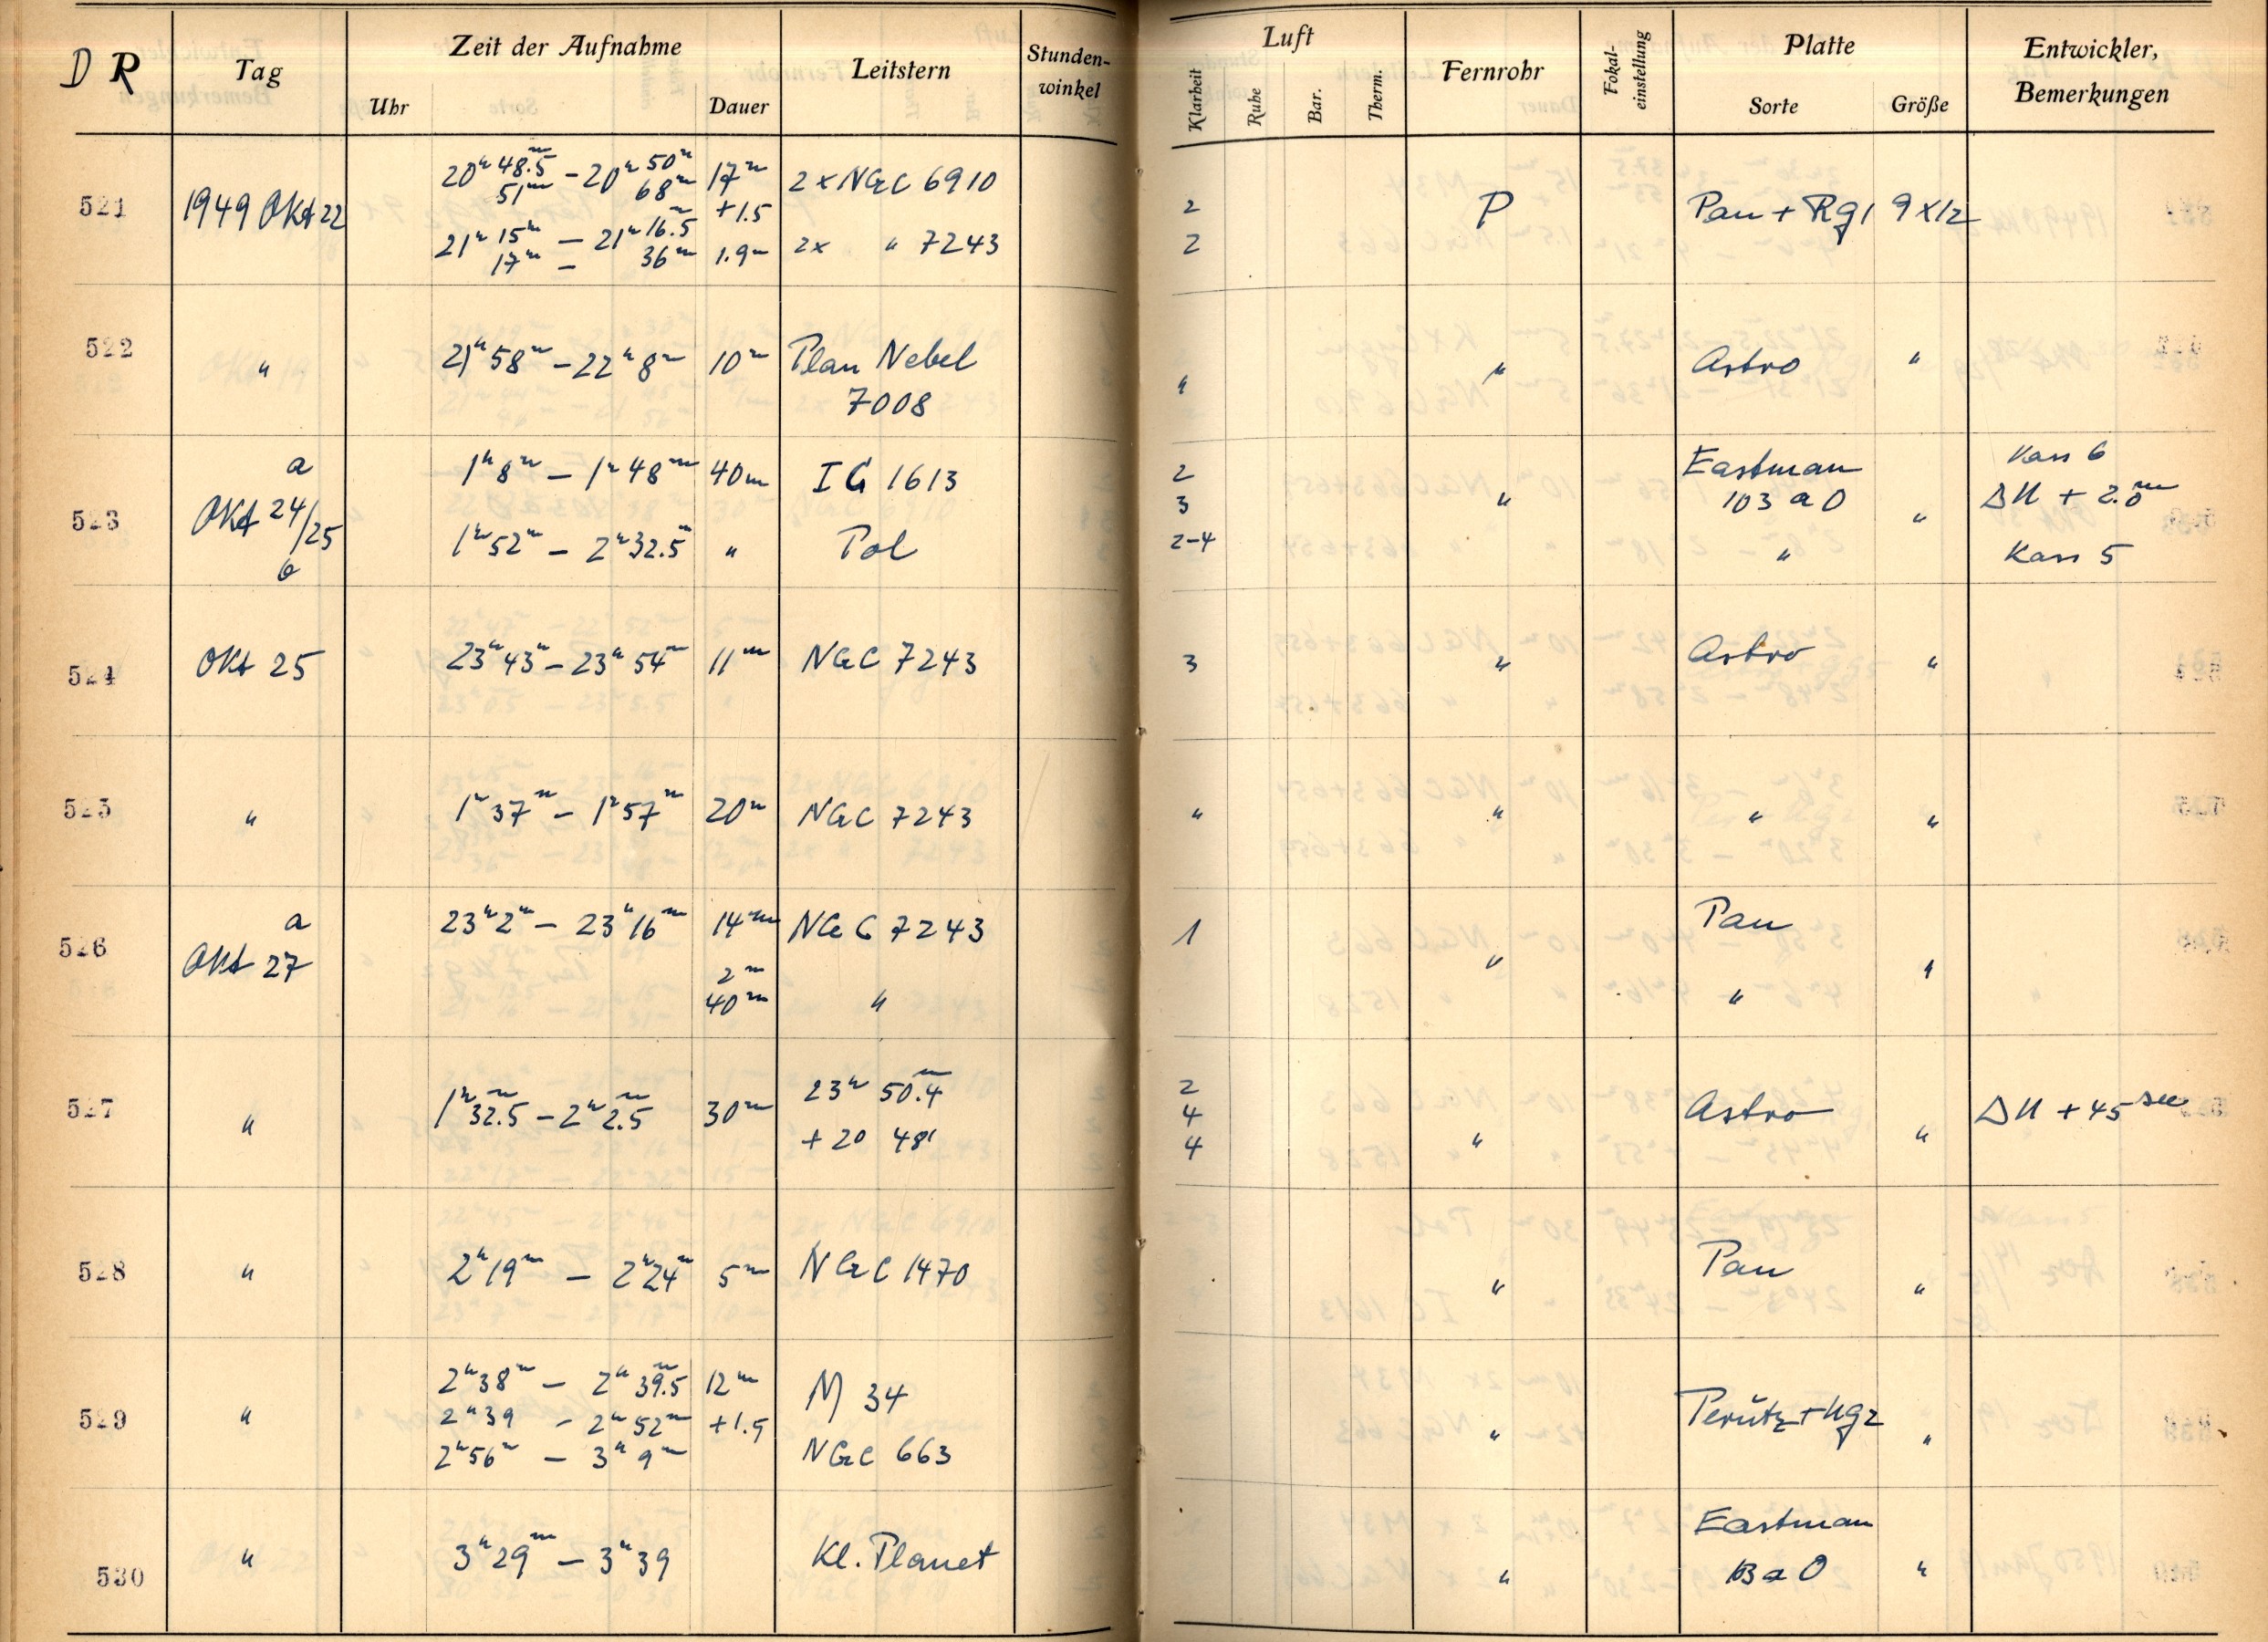 DR Tag Zeit der Aufnahme Leitstern Stunden-winkel Luft Fernrohr Fokal-einstellung Platte Entwickler, Bemerkungen
Uhr Dauer Klarheit Ruhe Bar. Therm. Sorte Größe
20h 48.5m - 20h 50m 17m 2x NGC 6910
51m 68m +1.5
521 1949 Okt 22 2 P Pan + Rg1 9x12
21h 15m - 21h 16.5m 2x " 7243 2
17m - 36m 1.9m
522 " 21h 58m - 22h 8m 10m Plan Nebel " " Astro "
7008
a 1h 8m - 1h 48m 40m IC 1613 2 Eastman Kass 6
523 Okt 24/25 3 " 103 a O " ΔU + 2.0m
b 1h 52m - 2h 32.5m " Pol 2-4 " Kass 5
524 Okt 25 23h 43m - 23h 54m 11m NGC 7243 3 " Astro "
525 " 1h 37m - 1h 57m 20m NGC 7243 " " " "
a 23h 2m - 23h 16m 14m NGC 7243 1 Pan
526 Okt 27 2m " "
40m " "
23h 50.4m 2
527 " 1h 32.5m - 2h 2.5m 30m 4 Astro ΔU + 45 sec
+20 48' 4 " "
528 " 2h 19m - 2h 24m 5m NGC 1470 " Pan "
2h 38m - 2h 39.5m 12m M 34
529 " 2h 39 - 2h 52m +1.5 " Perutz + Ug2 "
2h 56m - 3h 9m NGC 663
Eastman
530 " 3h 29m - 3h 39 Kl. Planet " 103 a O "